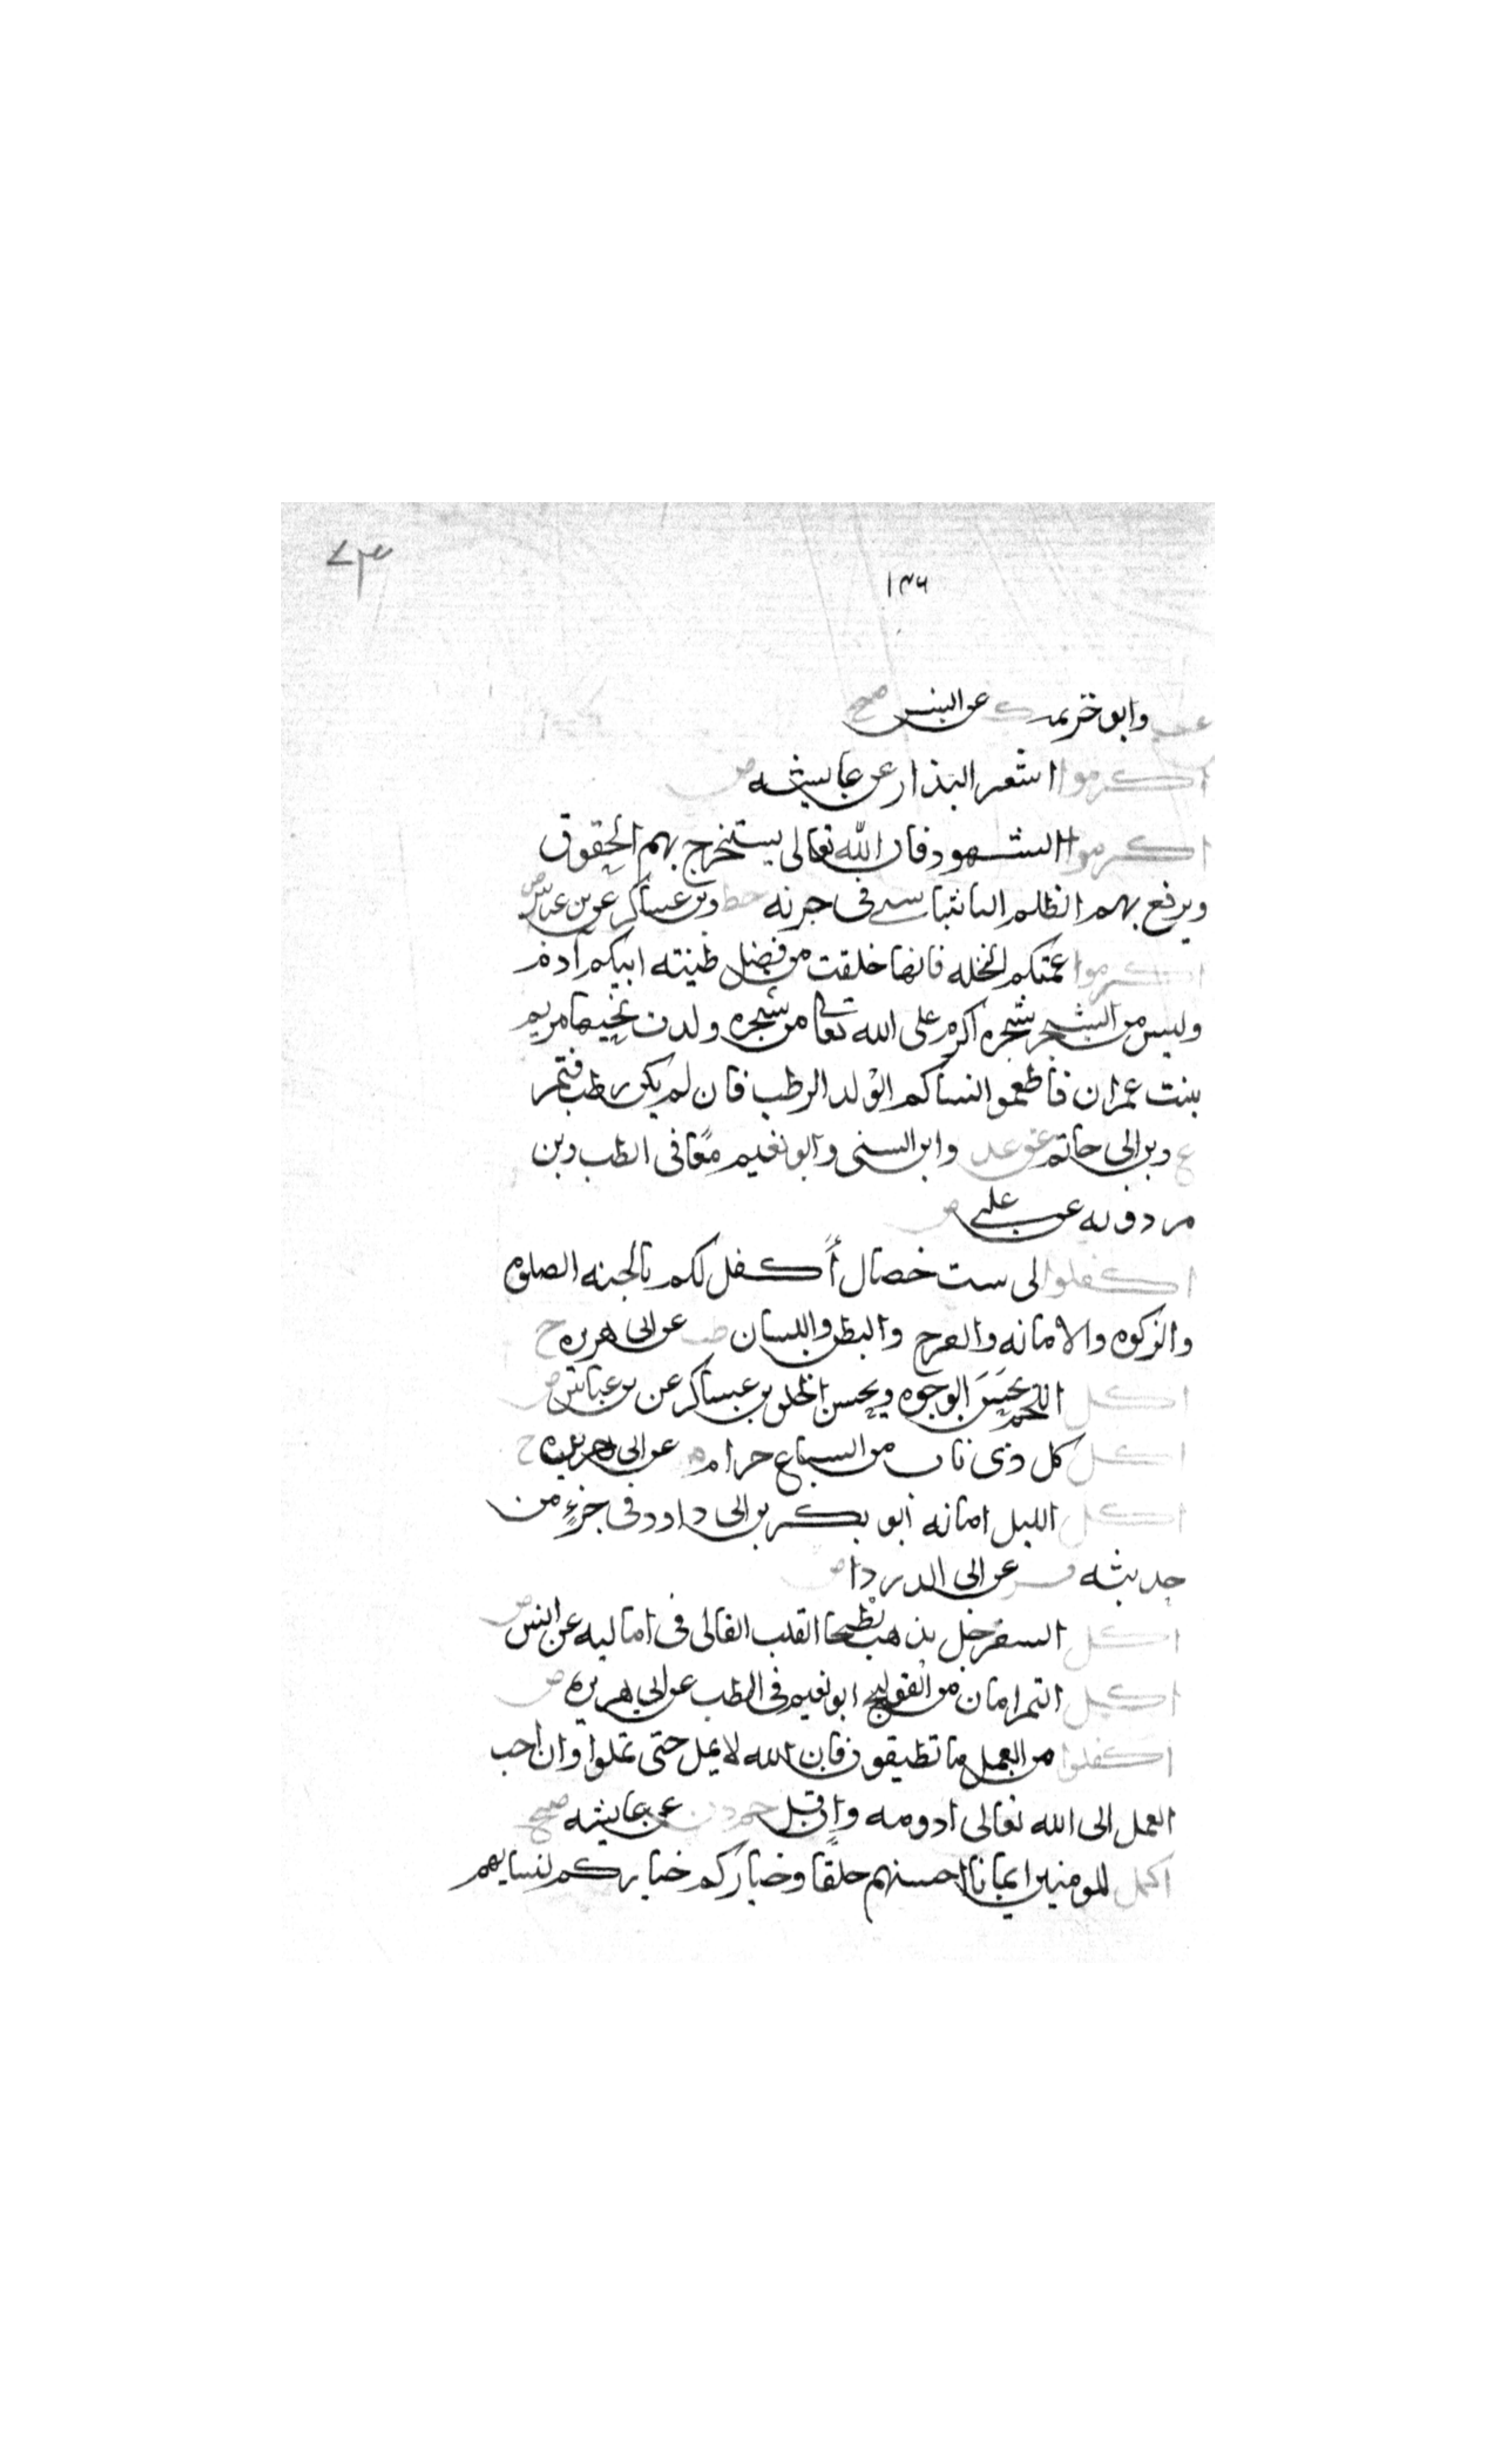 ٧٣
١٣٤
عب وابو خزيمه ك عن انس صح
اكرموا الشعر البزار عن عايشه ض
اكرموا الشهود فان الله تعالى يستخرج بهم الحقوق
ويرفع بهم الظلم البانياسى فى جزئه خط وبن عساكر عن بن عباس ض
اكرموا عمتكم النخله فانها خلقت من فضل طينته ابيكم آدم
وليس من الشجر شجره اكرم على الله تعالى من شجره ولدت تحتها مريم
بنت عمران فاطعموا نساكم الولد الرطب فان لم يكن رطب فتمر
ع وبن ابى حاتم عق عد وابن السنى وابو نعيم معًا فى الطب وبن
مردويه عن على ض
اكفلوا لى ست خصال أكفل لكم بالجنه الصلوه
والزكوه والامانه والفرج والبطن واللسان طب عن ابى هريره ح
اكل اللحم يحسن الوجوه ويحسن الخلق بن عساكر عن بن عباس ض
اكل كل ذى ناب من السباع حرام ه عن ابى هريره ح
اكل الليل امانه ابو بكر بن ابى داود فى جزءٍ من
حديثه فر عن ابى الدردا ض
اكل السفرجل يذهب بطخا القلب القالى فى اماليه عن انس ض
اكل التمر امان من القولنج ابو نعيم فى الطب عن ابى هريره ض
اكفلوا من العمل ما تطيقون فان الله لا يمل حتى تملوا وان احب
العمل الى الله تعالى ادومه وان قل حم د ن عن عايشه صح
اكمل المومنين ايمانا احسنهم خلقا وخياركم خياركم لنسايهم